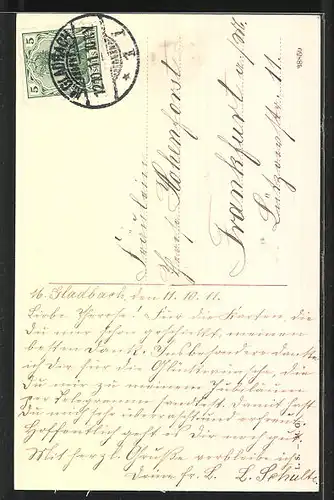 5
5
M. GLADBACH
Fräulein
Hohenforst
Frankfurt a/M.
Lützowstr. 11.
M. Gladbach, den 11. 10. 11.
Liebe Therese! Für die Karten, die
Du mir schon geschickt, meinen
besten Dank. Insbesondere danke
ich Dir für die Glückwünsche, die
Du mir zu meinem Jubiläum
per Telegramm sandtest. Damit hast
Du mich sehr überrascht und erfreut.
Hoffentlich geht es Dir noch gut.
Mit herzl. Gruße verbleibe ich
Deine Fr. L. L. Schulte